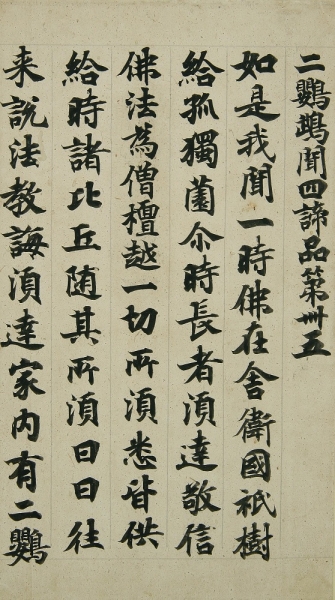 二鸚鵡聞四諦品第卅五
如是我聞一時佛在舍衛國祇樹
給孤獨薗尒時長者湏達敬信
佛法為僧檀越一切所湏悉皆供
給時諸比丘随其所湏日日往
来說法教誨湏達家内有二鸚